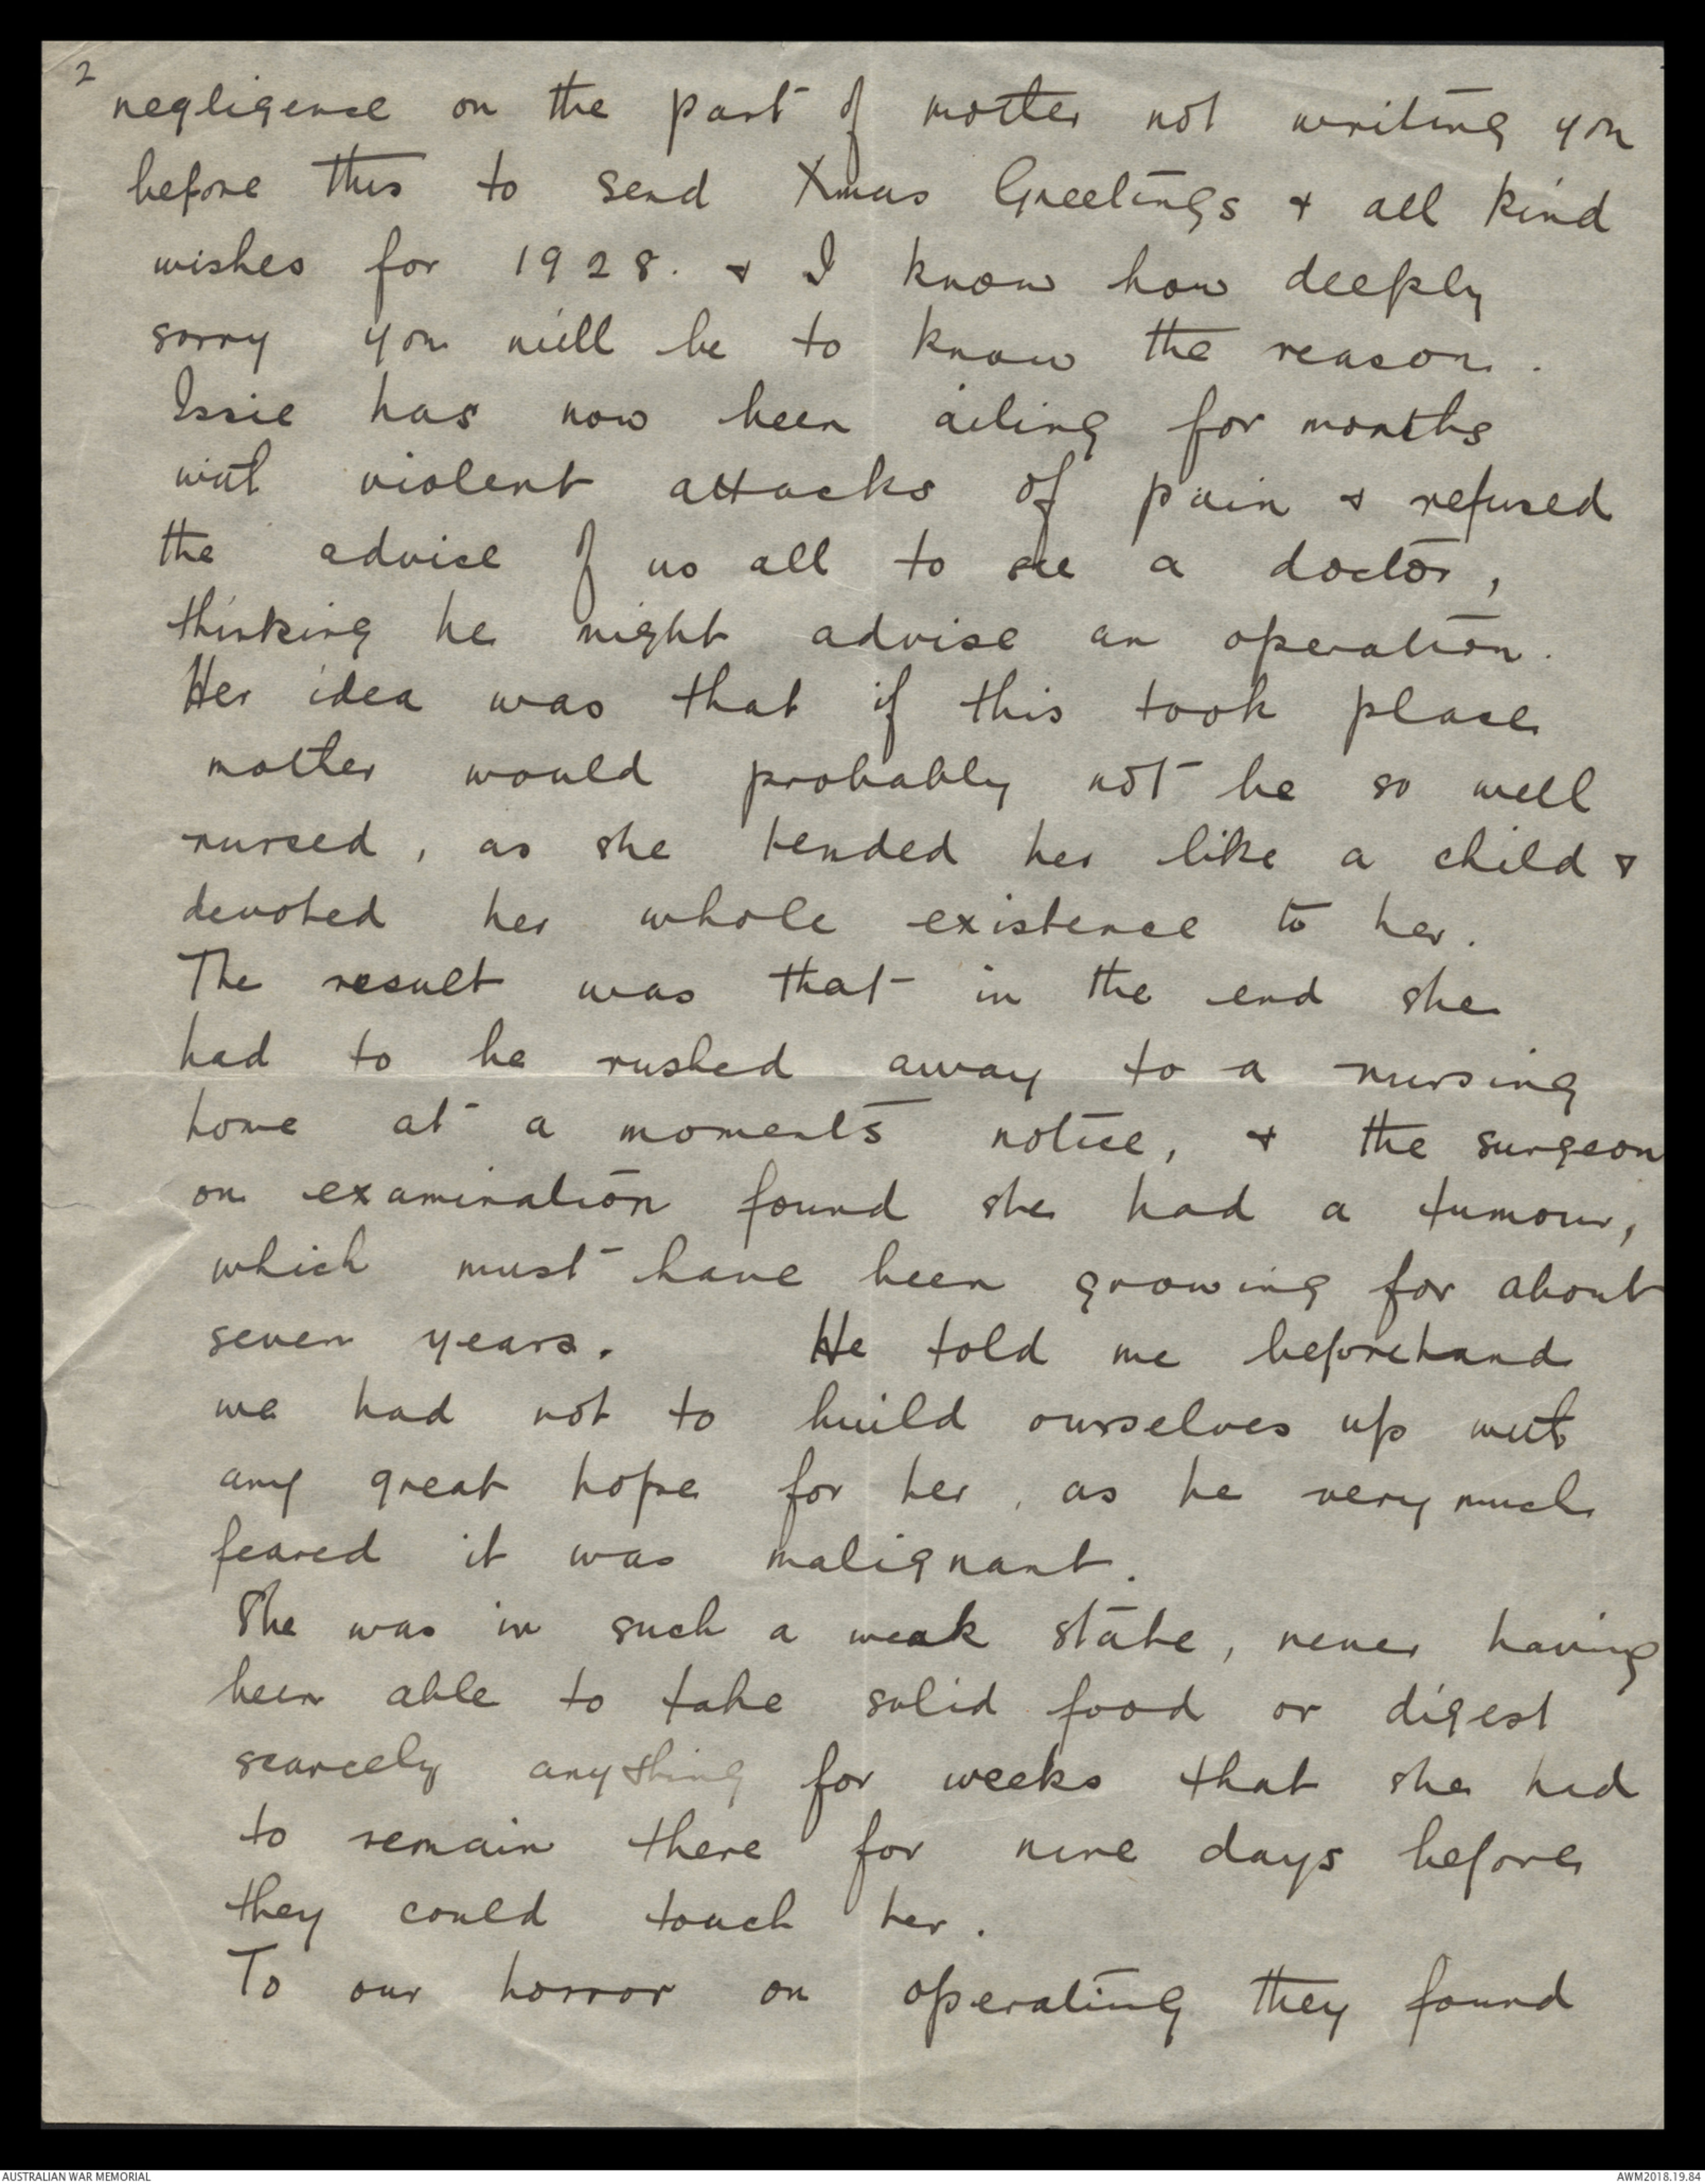 2
negligence on the part of mother not writing you
before this to send Xmas Greetings & all kind
wishes for 1928. & I know how deeply
sorry you will be to know the reason.
Issie has now been ailing for months
with violent attacks of pain & refused
the advice of us all to see a doctor,
thinking he might advise an operation.
Her idea was that if this took place
mother would probably not be so well
nursed, as she tended her like a child &
devoted her whole existence to her.
The result was that in the end she
had to be rushed away to a nursing
home at a moments notice, & the surgeon
on examination found she had a tumour,
which must have been growing for about
seven years. He told me beforehand
we had not to build ourselves up with
any great hope for her, as he very much
feared it was malignant.
She was in such a weak state, never having
been able to take solid food or digest
scarcely anything for weeks that she had
to remain there for nine days before
they could touch her.
To our horror on operating they found
AUSTRALIAN WAR MEMORIAL
AWM2018.19.84